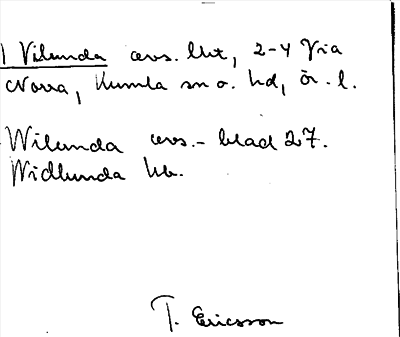 1 Vilunda avs. lht, 2-4 Via
Norra, Kumla sn o. hd, Ör. l.
Wilunda avs.- blad 27.
Widlunda hb.
T. Ericsson